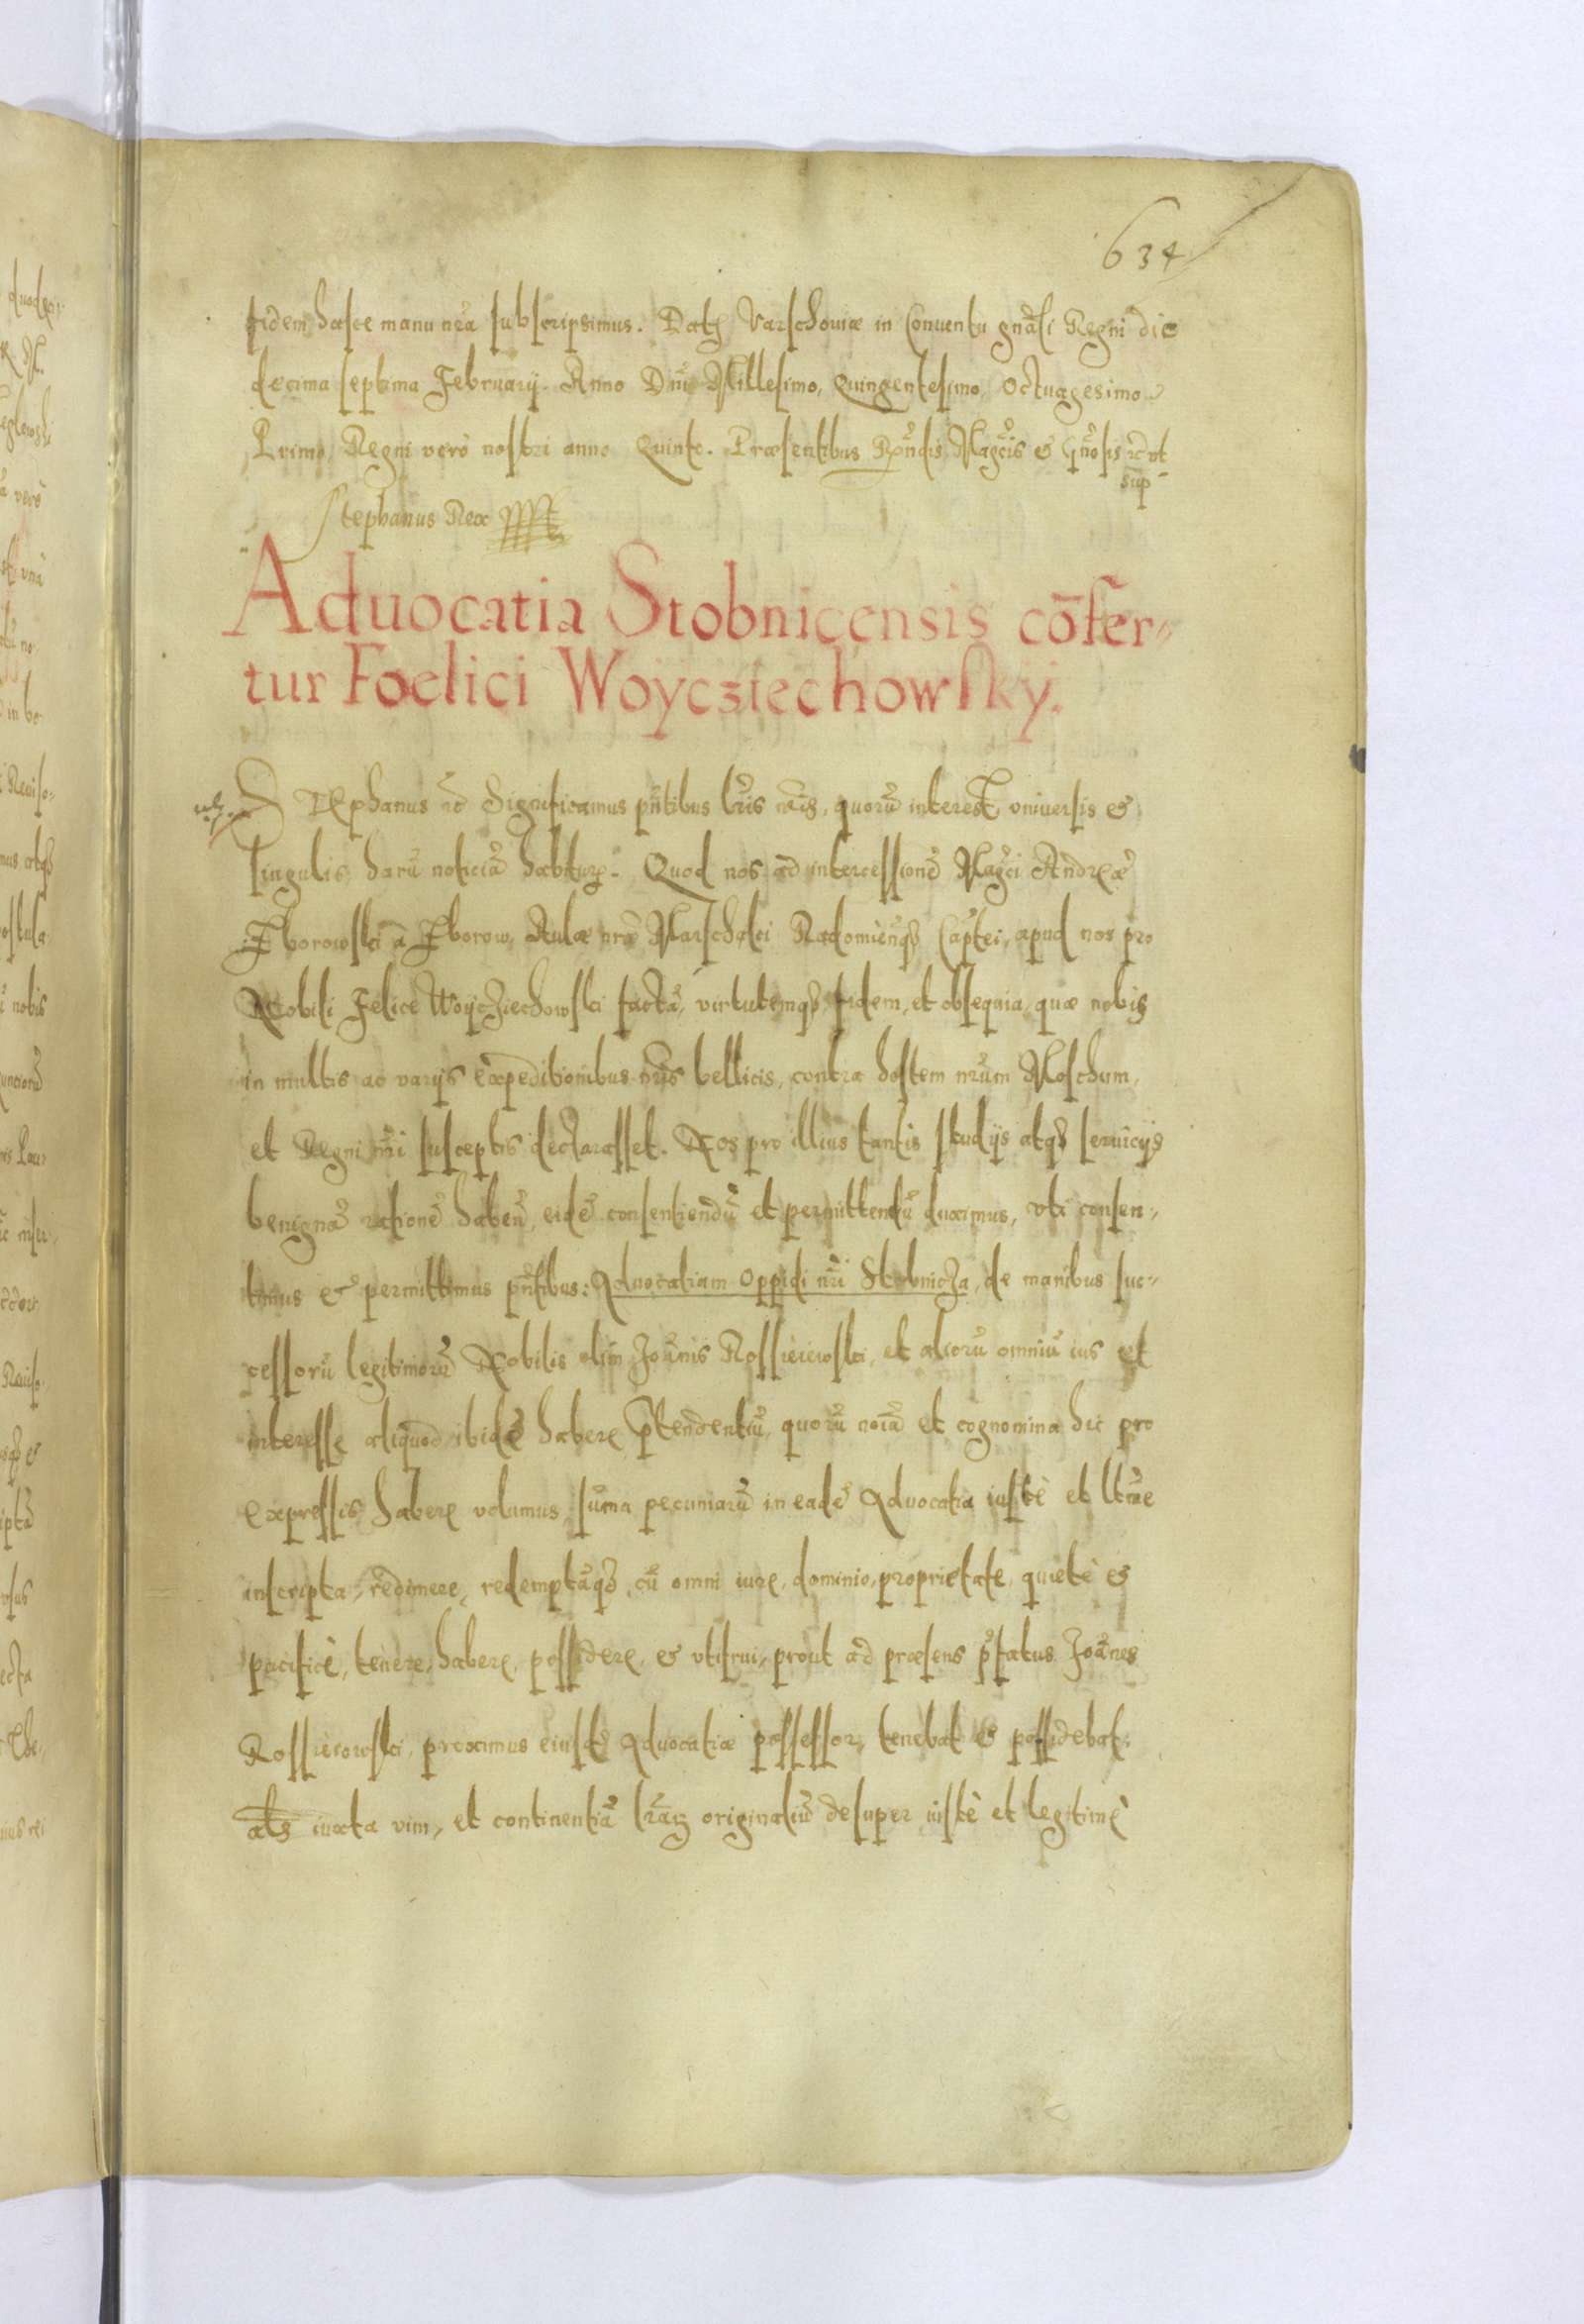 634
fidem hasce manu nrã subscripsimus. Datȝ Varschouiæ in Conuentu gnãli Regni die
decima septima Februarij. Anno Dnĩ Millesimo, Quingentesimo, Octuagesimo
Primo, Regni verò nostri anno Quinto. Præsentibus Rñdis Magcis et Gñosis rc ut
sup
Stephanus Rex
Aduocatia Stobnicensis cõfer-
tur Foelici Woycziechowsky.
STephanus rc Significamus pñtibus lrĩs nrĩs, quorũ interest vniuersis et
singulis harũ noticiã habitur. Quod nos ad intercessionẽ Magci Andreæ
Zborowski à Zborow, Aulæ nræ Marschalci Radomieñqȝ Captei, apud nos pro
Nobili Felice Woycziechowski factã, virtutemqȝ fidem, et obsequia, quæ nobis
in multis ac varijs expeditionibus nrĩs bellicis, contra hostem nrũm Moschum,
et Regni nrĩ susceptis declarasset. Nos pro illius tantis studijs atqȝ seruicijs
benignã rationẽ habeñ, eidẽ consentiendũ et permittendũ duximus, vti consen-
timus et permittimus pñtibus: Aduocatiam Oppidi nrĩ Stobnicza, de manibus suc-
cessorũ legitimorũ Nobilis olim Joãnis Rossieiewski, et aliorũ omniũ ius et
interesse aliquod ibidẽ habere prætendentiũ, quorũ noĩa et cognomina hic pro
expressis habere volumus, sũma pecuniarũ in eadẽ Aduocatia iustè et ltĩme
inscripta, redimere, redemptãqȝ, cũ omni iure, dominio, proprietate, quietè et
pacificè, tenere, habere, possidere, et vtifrui, prout ad præsens pfatus Joãnes
Rossieiowski, proximus eiusdẽ Aduocatiæ possessor, tenebat et possidebat:
als iuxta vim, et continentiã lrãȝ originaliũ desuper iustè et legitimè